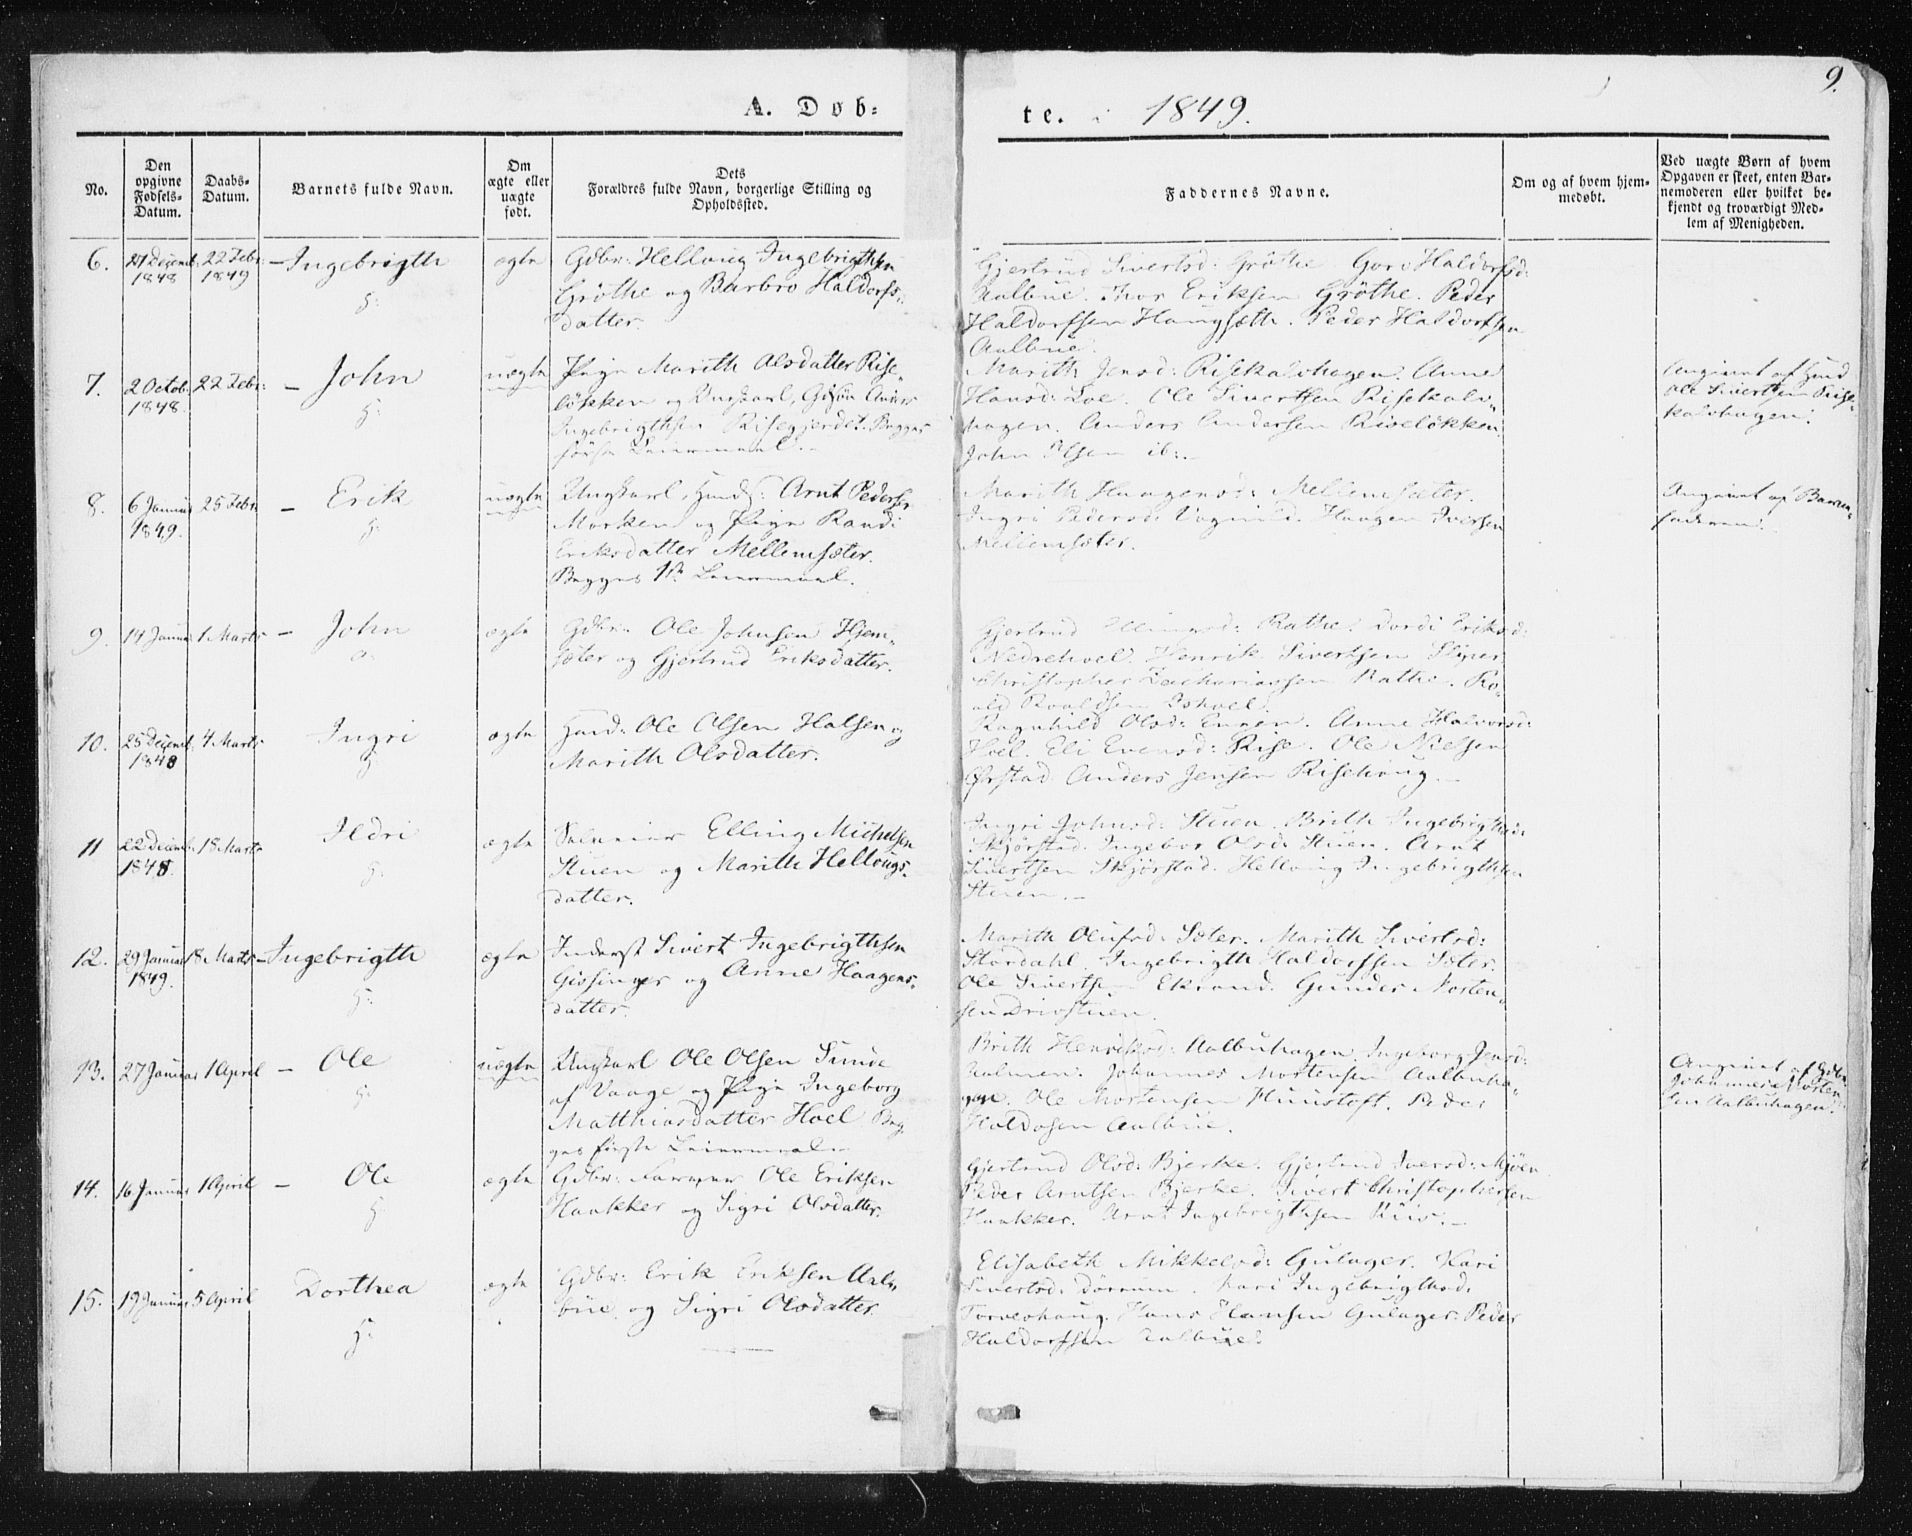 9.
A. Døb=
te. i 1849.
No.
Den opgivne Fødsels-Datum.
Daabs-Datum.
Barnets fulde Navn.
Om ægte eller uægte født.
Dets Forældres fulde Navn, borgerlige Stilling og Opholdssted.
Faddernes Navne.
Om og af hvem hjemmedøbt.
Ved uægte Børn af hvem Opgaven er skeet, enten Barnemoderen eller hvilket bekjendt og troværdigt Medlem af Menigheden.
6. 1848 22 Febr: 1849 – Ingebrigth ægte
Gdbr: Helloug Ingebrigthsen
Grøthe og Barbro Haldorfs-
datter.
Gjertrud Sivertsd: Grøthe Guri Haldorfsd:
Aalbue. Thor Eriksen Grøthe. Peder
Haldorfsen Haugsæth. Peder Haldorfsen
Aalbue.
7. 2 Octob: 1848. 22 Febr: – John uægte
Pige Marith Olsdatter Rise-
løkken og Ungkarl,
Ingebrigthsen Risegjerdet. Begges
første Leiermaal.
Marith Jensd: Risekalvhagen. Anne
Hansd: Loe. Ole Sivertsen Risekalv-
hagen. Anders Andersen Riseløkken.
John Olsen ib:
Angivet af Huusmd
Ole Sivertsen Rise-
kalvhagen.
8. 6 Januar 1849. 25 Febr – Erik uægte
Ungkarl, Huusmd: Arnt Pedersen
Morken og Pige Randi
Eriksdatter Mellemsæter.
Begges 1ste Leiermaal.
Marith Haagensd: Mellemsæter.
Ingri Pedersd: Haagen Iversen
Mellemsæter.
Angivet af Barne-
faderen.
9. 14 Januar 1 Marts – John ægte
Gdbr: Ole Johnsen Hjem-
sæter og Gjertrud Eriksdatter.
Gjertrud Ellingsd: Rathe. Dordi Eriksd:
Nedrehoel. Henrik Sivertsen
Christopher Zachariassen Rathe. Ro-
ald Roaldsen Ishoel.
10. 25 Decemb. 1848 4 Marts Ingri ægte
Huusmd: Ole Olsen Halsen og
Marith Olsdatter.
Ragnhild Olsd: Engen. Anne Halvorsd:
Hoel. Eli Evensd: Rise. Ole Nielsen
Ørstad. Anders Jensen Risehaug.
11 22 Decemb. 1848. 18 Marts Ildri ægte
Elling Michelsen
Stuen og Marith Hellougs-
datter.
Ingri Johnsd: Stuen. Brith Ingebrigthsd:
Skjørstad. Ingebor Olsd: Stuen. Arnt
Sivertsen Skjørstad. Helloug Ingebrigthsen
Stuen.
12. 29 Januar 1849. 18 Marts – Ingebrigth ægte
Inderst Sivert Ingebrigthsen
Gissinger og Anne Haagens-
datter.
Marith Olufsd: Sæter. Marith Sivertsd:
Stordahl. Ingebrigth Haldorfsen Sæter.
Ole Sivertsen Ekrand. Gunder Morten-
sen Drivstuen.
13. 27 Januar 1 April – Ole uægte
Ungkarl Ole Olsen Sunde
af Vaage og Pige Ingeborg
Matthiasdatter Hoel Beg-
ges første Leiermaal.
Brith Henriksd: Aalbuhagen. Ingeborg Jensd:
Johannes Mortensen Aalbuha-
gen. Ole Mortensen Huustoft. Peder
Haldosen Aalbue.
Angivet af Gdbr.
Johannes Morten-
sen Aalbuhagen.
14. 16 Januar 1 April – Ole ægte
Gdbr: Ole Eriksen
Haukker og Sigri Olsdatter.
Gjertrud Olsd: Bjerke. Gjertrud Iversd: Mjøen
Peder Arntsen Bjerke. Sivert Christophersen
Haukker. Arnt Ingebrigthsen Riis.
15. 19 Januar 5 April Dorthea ægte
Gdbr: Erik Eriksen Aal-
bue og Sigri Olsdatter.
Elisabeth Mikkelsd: Gulager. Kari
Sivertsd: Dørrum. Kari Ingebrigthsd:
Torveshaug. Hans Hansen Gulager. Peder
Haldorfsen Aalbue.